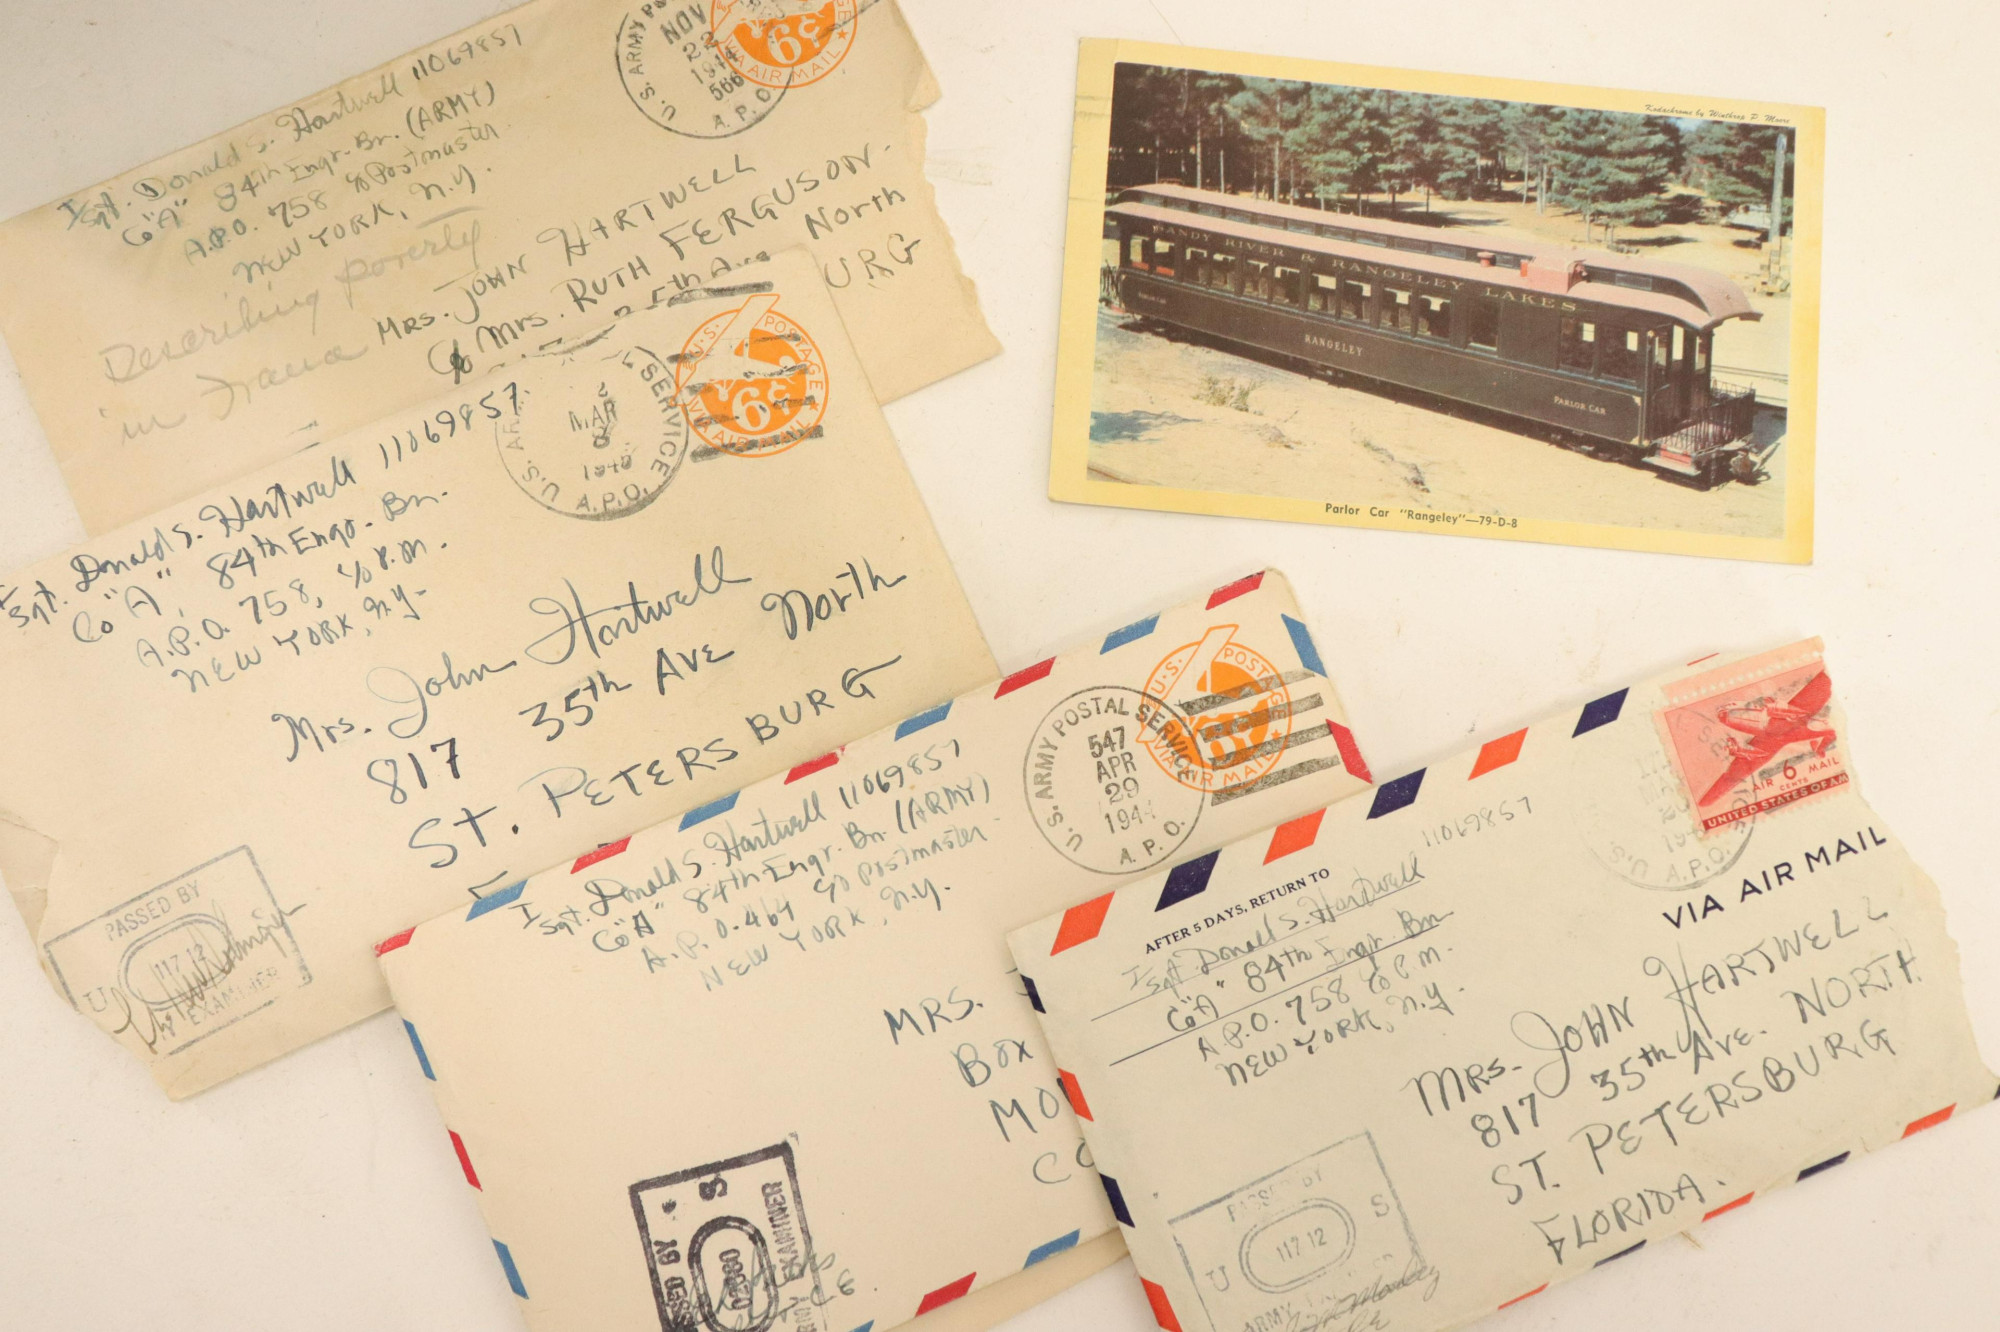 I Sgt. Donald S. Hartwell 11069857
Co "A" 84th Engr. Bn. (ARMY)
A.P.O. 758 c/o Postmaster
NEW YORK, N.Y.
Describing poverty
in France
U.S. ARMY
NOV
22
1944
566
A.P.O.
6¢
VIA AIR MAIL
MRS. JOHN HARTWELL
c/o Mrs. RUTH FERGUSON-
35th Ave North
URG
I Sgt. Donald S. Hartwell 11069857
Co "A", 84th Engr. Bn.
A.P.O. 758, c/o P.M.
NEW YORK, N.Y.
U.S. ARMY SERVICE
MAR
A.P.O.
U.S. POSTAGE
6¢
VIA AIR MAIL
Mrs. John Hartwell
817 35th AVE North
ST. PETERSBURG
PASSED BY
U
11712
EXAMINER
I Sgt. Donald S. Hartwell 11069857
Co "A" 84th Engr. Bn (ARMY)
A.P.O. 464 c/o Postmaster
NEW YORK, N.Y.
U.S. ARMY POSTAL SERVICE
547
APR
29
1944
A.P.O.
U.S. POSTAGE
6¢
VIA AIR MAIL
MRS.
Box
PASSED BY
S.
02980
ARMY EXAMINER
AFTER 5 DAYS, RETURN TO
I Sgt. Donald S. Hartwell 11069857
Co "A" 84th Engr. Bn
A.P.O. 758 c/o P.M.
NEW YORK, N.Y.
A.P.O.
AIR 6 MAIL
CENTS
UNITED STATES OF AM
VIA AIR MAIL
MRS. JOHN HARTWELL
817 35th AVE. NORTH
ST. PETERSBURG
FLORIDA.
PASSED BY
U S
11712
ARMY
Kodachrome by Winthrop P. Moore
SANDY RIVER & RANGELEY LAKES
PARLOR CAR
RANGELEY
PARLOR CAR
Parlor Car "Rangeley"—79-D-8